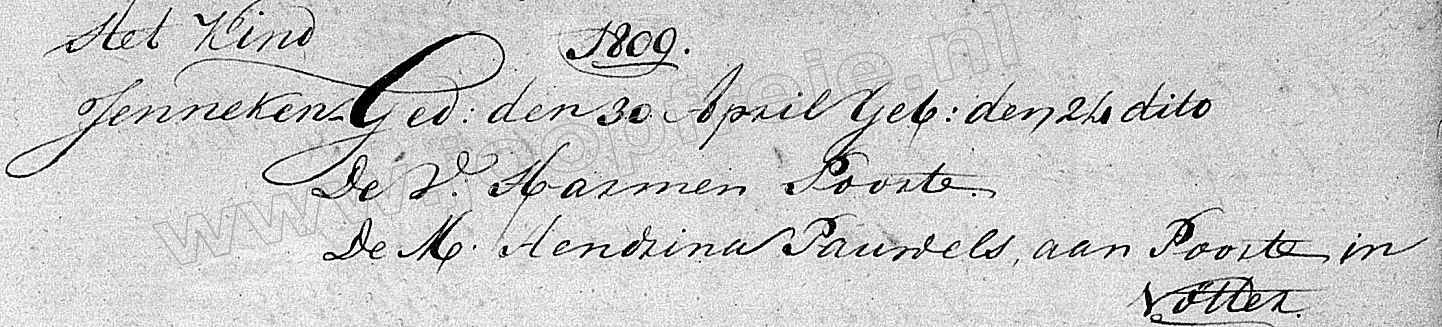 Het Kind 1809.
Jenneken Ged: den 30 April Geb: den 24 dito
De V. Harmen Poorte.
De M. Hendrina Pauwels, aan Poorte in
Nötter.